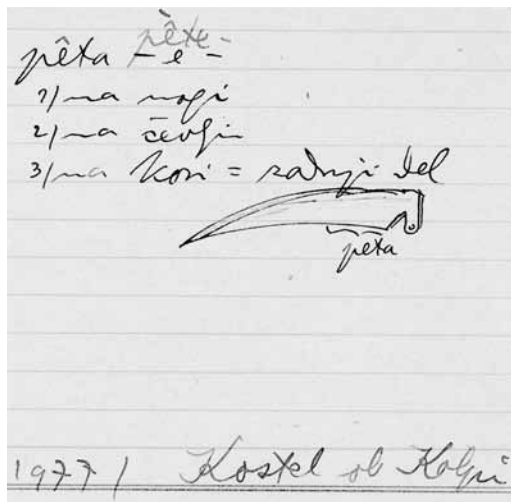 pête -
pêta - e -
1) na nogi
2) na čevlji
3) na kosi = zadnji del
peta
1977 / Kostel ob Kolpi